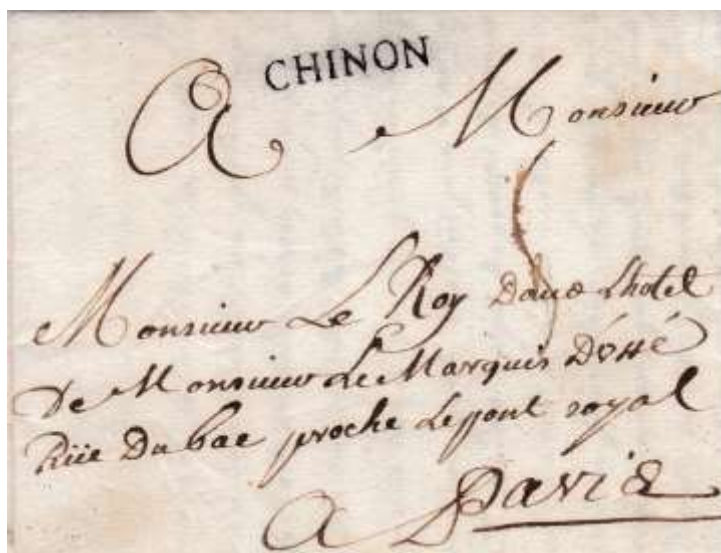 CHINON
A Monsieur
Monsieur Le Roy dans Lhotel
De Monsieur Le Marquis D'ussé
Rüe Du bac proche Le pont royal
A Paris